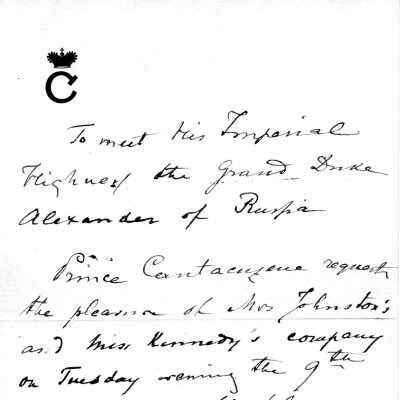 C
To meet His Imperial
Highness the Grand Duke
Alexander of Russia
Prince Cantacuzene requests
the pleasure of Mrs Johnston's
and Miss Kennedy's company
on Tuesday evening the 9th